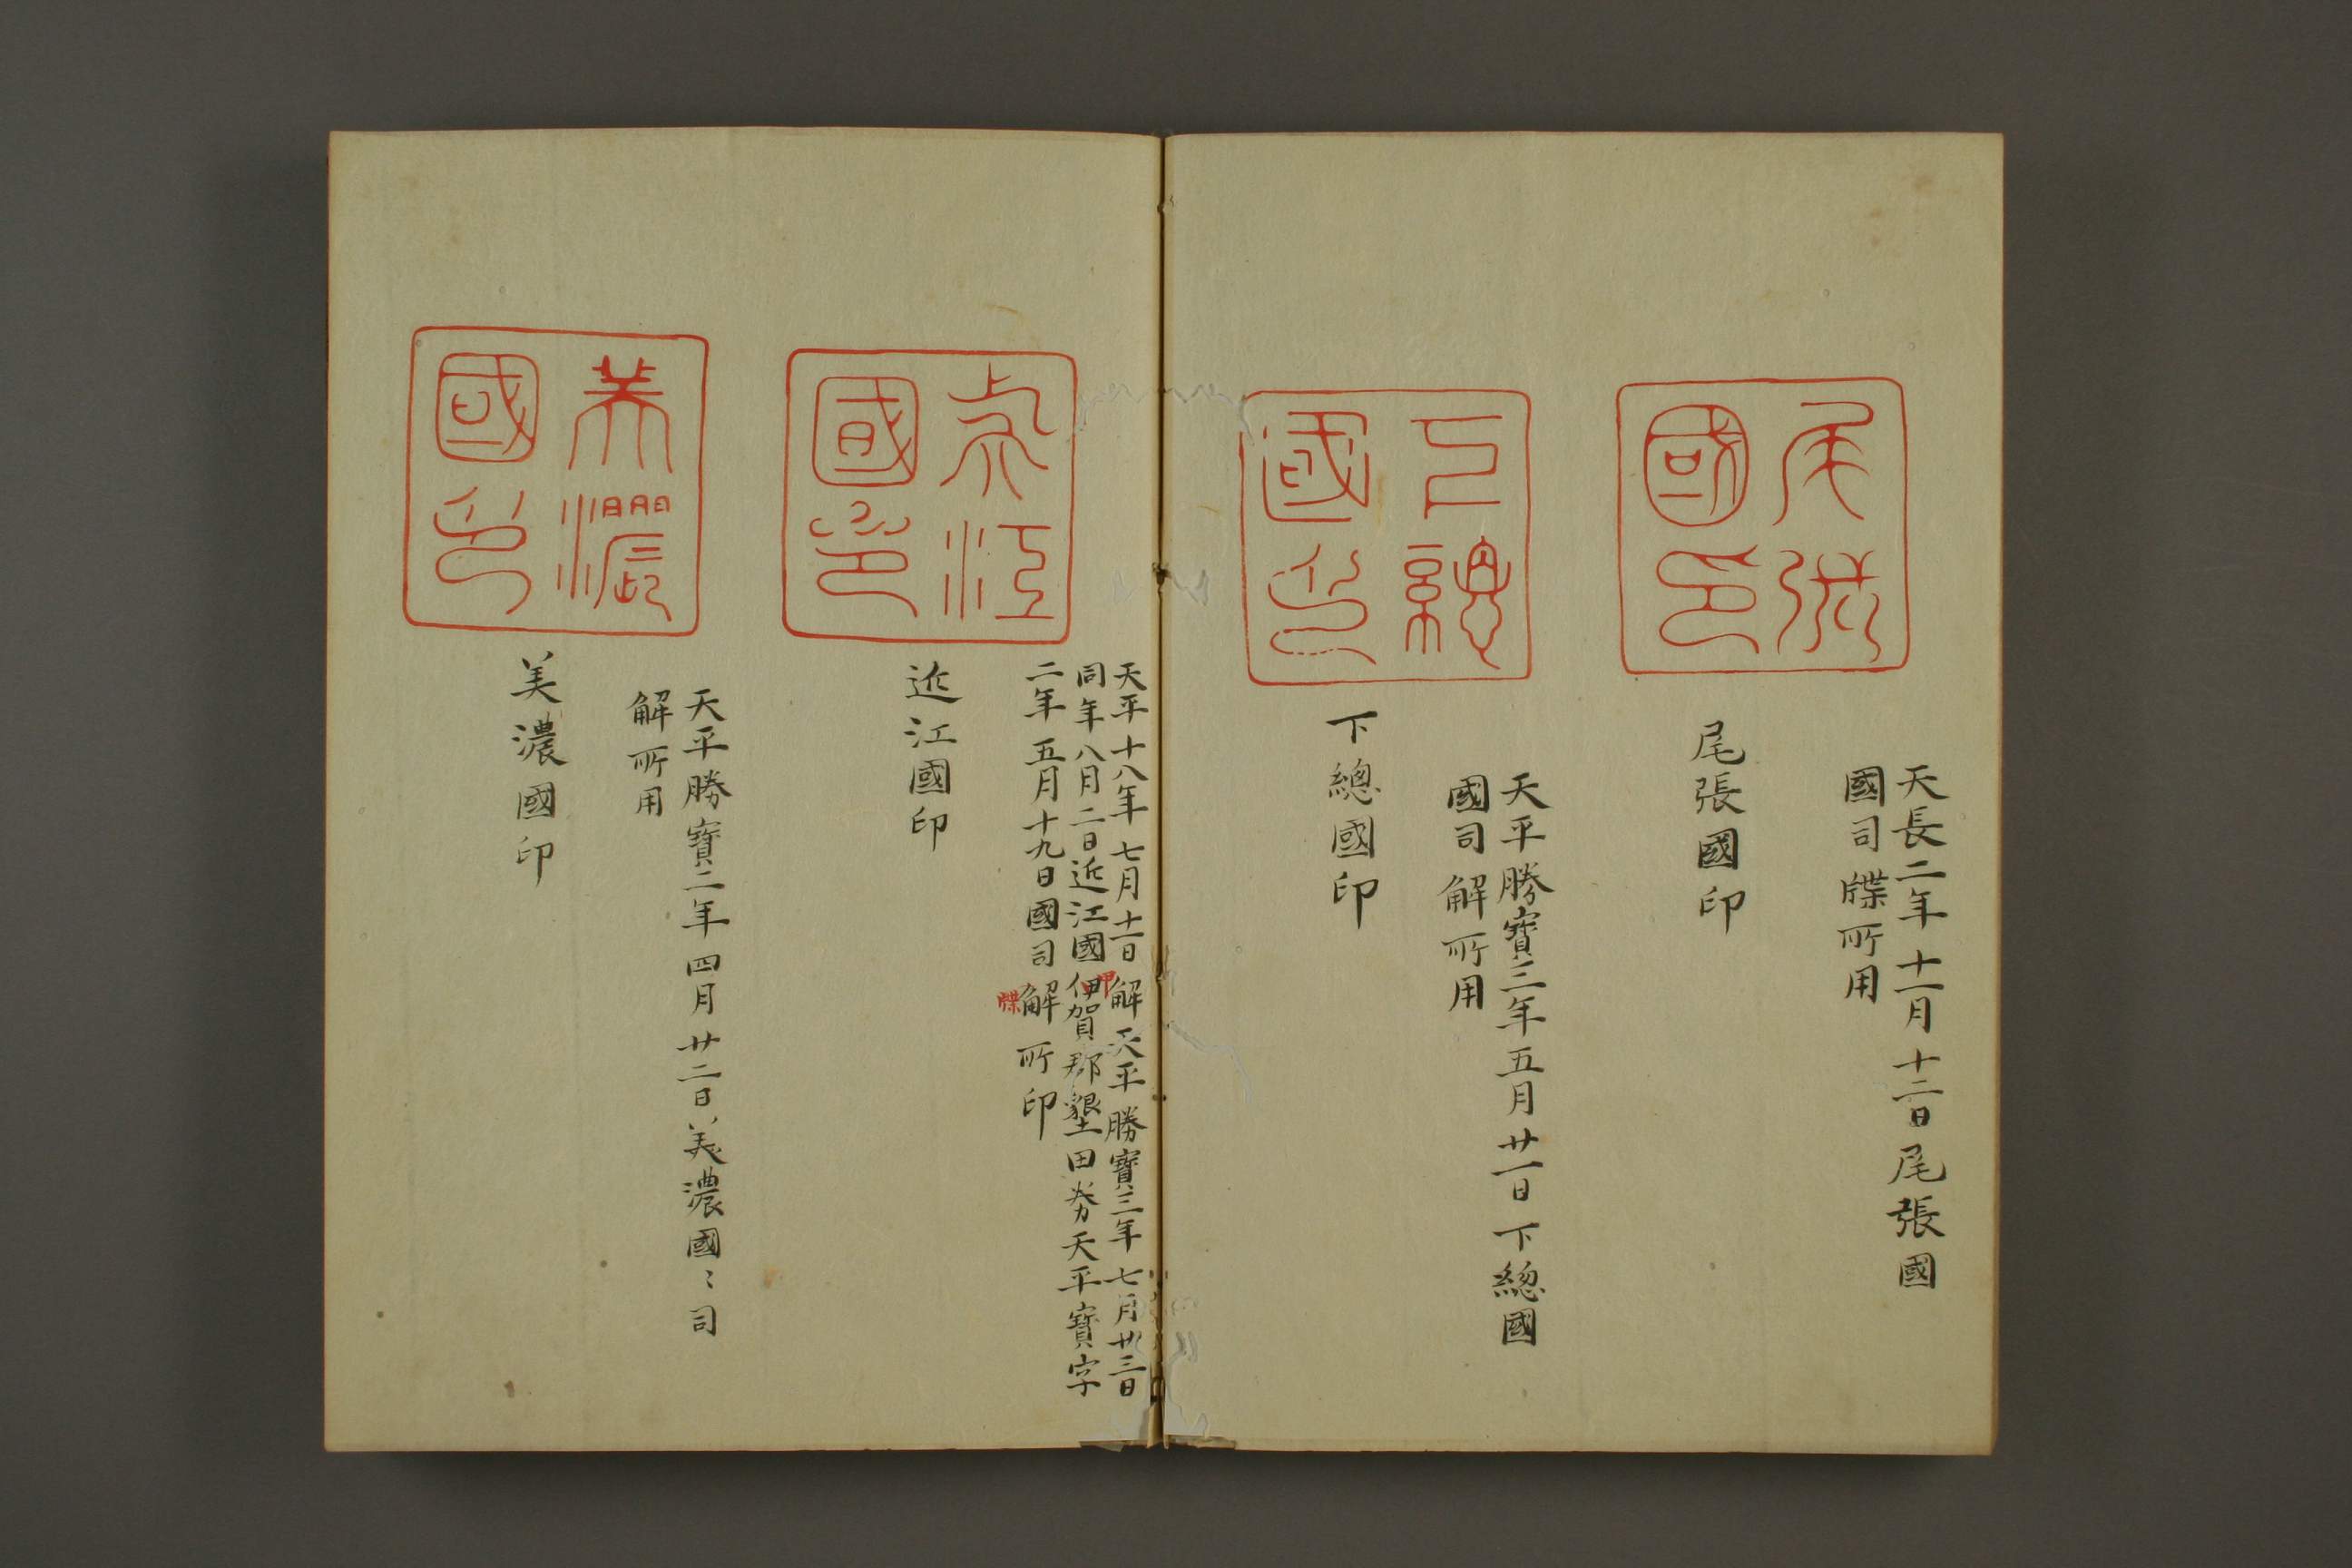 尾張國印
尾張國印
天長二年十一月十二日尾張國
國司牒所用
下總國印
下總國印
天平勝寶三年五月廿一日下總國
國司解所用
近江國印
近江國印
天平十八年七月十一日解天平勝寶三年七月廿三日
同年八月二日近江國甲伊賀郡墾田券天平寶字
二年五月十九日國司解所印
牒
美濃國印
美濃國印
天平勝寶二年四月廿二日美濃國〻司
解所用